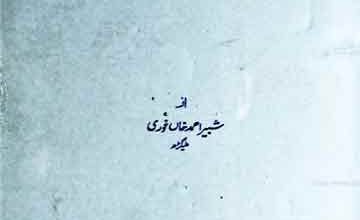 از
شبیر احمد خاں غوری
علیگڑھ